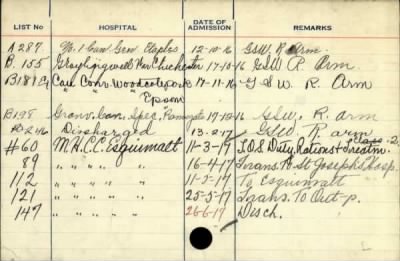 LIST No HOSPITAL DATE OF ADMISSION REMARKS
A 287. No. 1 Can Gen Etaples 12-10-16 GSW. R. Arm.
B. 155 Graylingwell War Chichester 17-10-16 GSW R. Arm
B181 Can Conv. Woodcote Park Epsom 17-11-16 G S W R. Arm
B198 Granv. Can. Spec. Ramsgate 17-12-16 GSW. R. arm
Discharged 13.2.17 GSW. R arm
#60 M.H.C.C. Esquimalt 11-3-17 T.O.S Duty, Rations & Treatm. Class-2.
89 " " " " 16-4-17 Trans. To St Joseph's Hosp.
112 " " " " 11-5-17 To Esquimalt
121 " " " " 25-5-17 Trans. To Out-p.
147 " " " " 26-6-17 Disch.